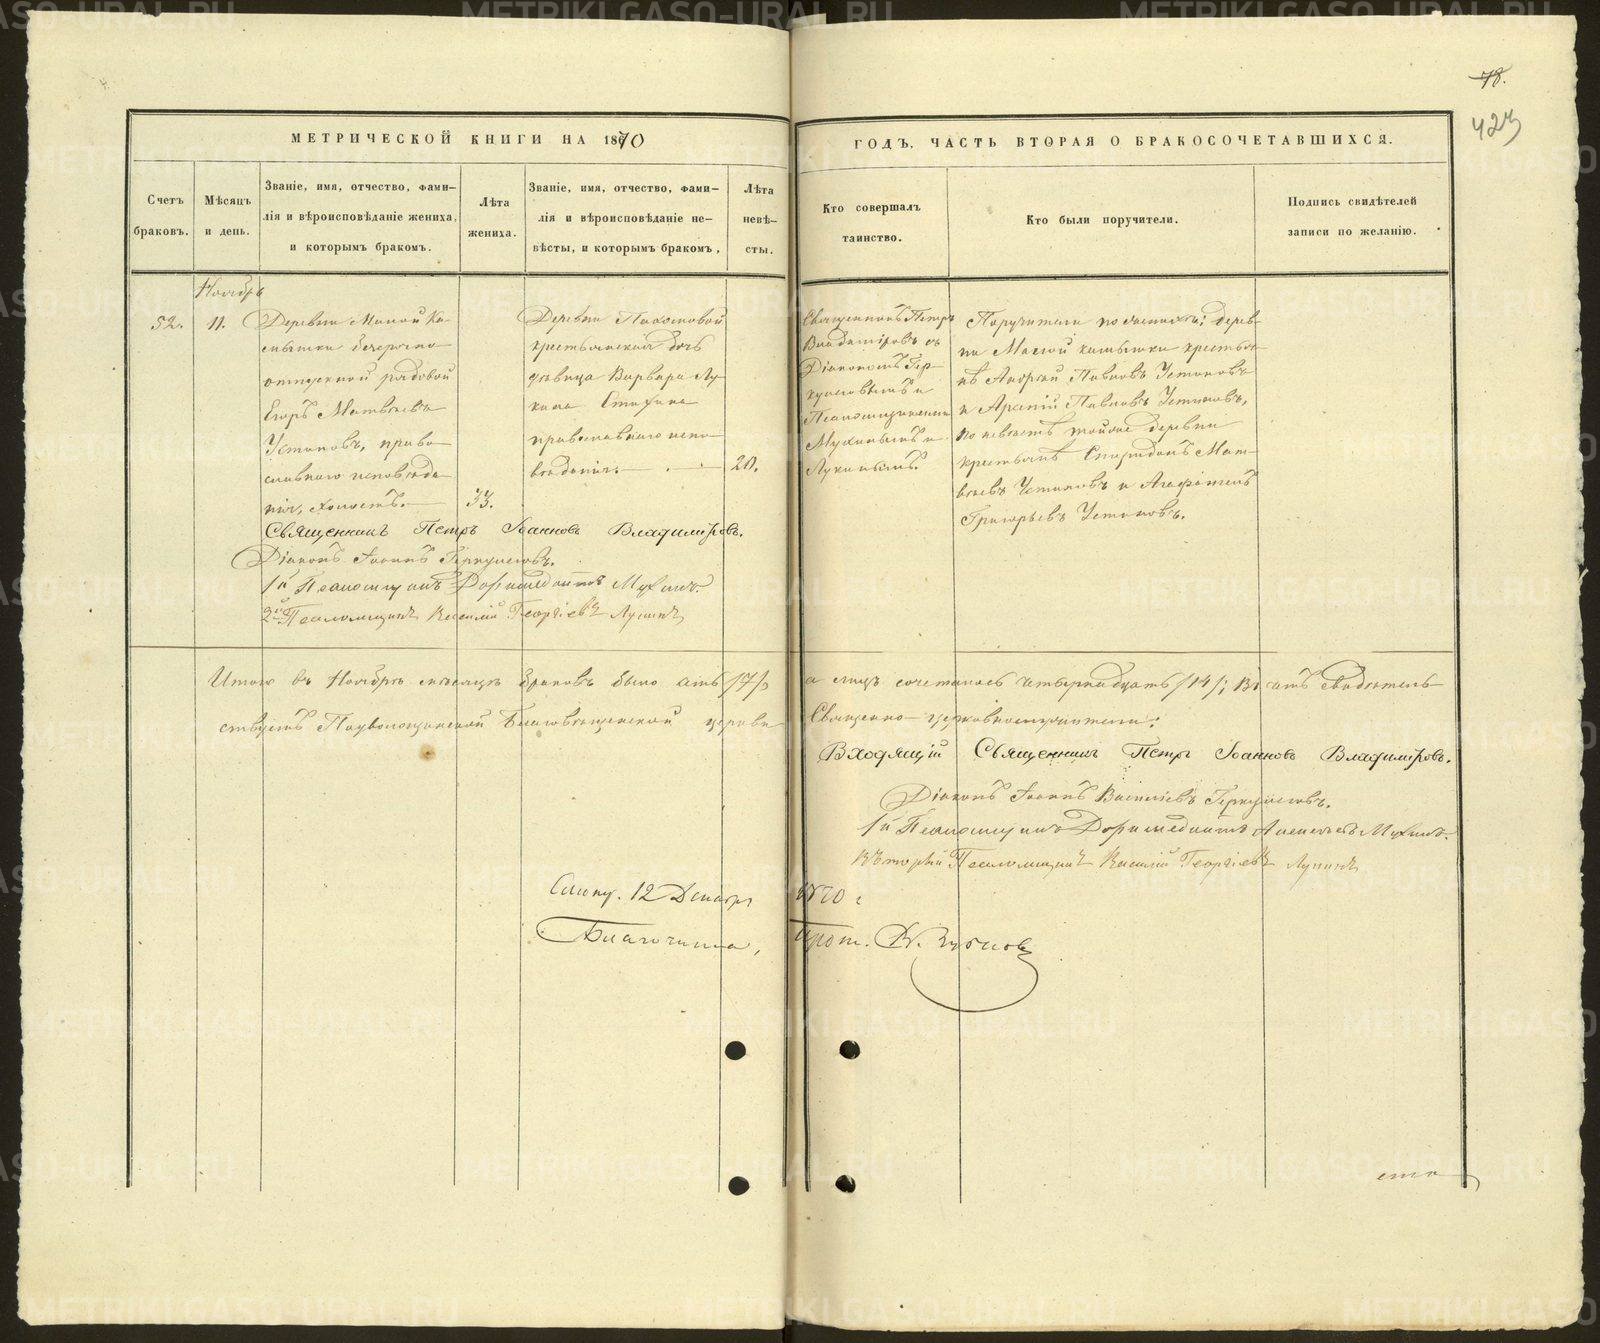 78.
423
МЕТРИЧЕСКОЙ КНИГИ НА 1870
ГОДЪ, ЧАСТЬ ВТОРАЯ О БРАКОСОЧЕТАВШИХСЯ.
Счетъ
браковъ.
Мѣсяцъ
и день.
Званіе, имя, отчество, фами-
лія и вѣроисповѣданіе жениха,
и которымъ бракомъ.
Лѣта
жениха.
Званіе, имя, отчество, фами-
лія и вѣроисповѣданіе не-
вѣсты, и которымъ бракомъ,
Лѣта
невѣ-
сты.
Кто совершалъ
таинство.
Кто были поручители.
Подпись свидѣтелей
записи по желанію.
Ноябрь
52.
11.
Деревни Малой Ка-
мышки безсрочно
отпускной рядовой
Егоръ Матвѣевъ
Устиновъ, право-
славнаго исповѣда-
нія, холостъ.
33.
Деревни Пахомовой
крестьянская дочь
дѣвица Варвара Лу-
кина
православнаго испо-
вѣданія.
20.
Священникъ Петръ
Владиміровъ съ
Діакономъ Гер-
кулесовымъ и
Псаломщиками
Мухинымъ и
Лукинымъ.
Поручители по женихѣ: дерев-
ни Малой камышки крестья-
нѣ Андрей Павловъ Устиновъ
и Арсеній Павловъ Устиновъ,
по невѣстѣ тойже деревни
крестьянѣ Спиридонъ Мат-
вѣевъ Устиновъ и Агафангелъ
Григорьевъ Устиновъ.
Священникъ Петръ Іоанновъ Владиміровъ.
Діаконъ Іоаннъ Геркулесовъ.
1й Псаломщикъ Доримедонтъ Мухинъ.
2й Псаломщикъ Василій Георгіевъ Лукинъ
Итого въ Ноябрѣ мѣсяцѣ браковъ было семь /7/,
а лицъ сочеталось четырнадцать /14/; въ чемъ свидѣтель-
ствуемъ Благовѣщенской церкви
Священно-церковнослужители:
Входящій Священникъ Петръ Іоанновъ Владиміровъ.
Діаконъ Іоаннъ Васильевъ Геркулесовъ.
1й Псаломщикъ Доримедонтъ Алексѣевъ Мухинъ.
Второй Псаломщикъ Василій Георгіевъ Лукинъ
12 Декабря 1870 г
Благочинный, прот.
METRIKI.GASO-URAL.RU